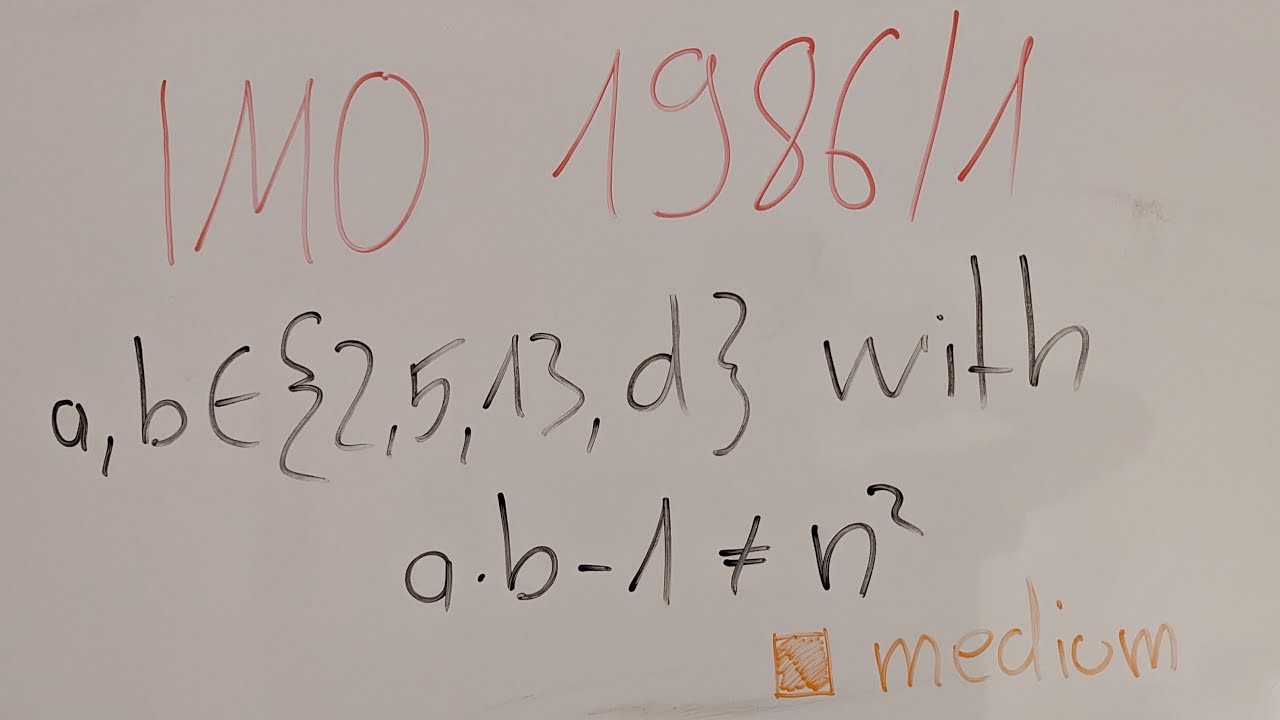 IMO 1986/1
a,b∈{2,5,13,d} with
a·b-1≠n²
medium